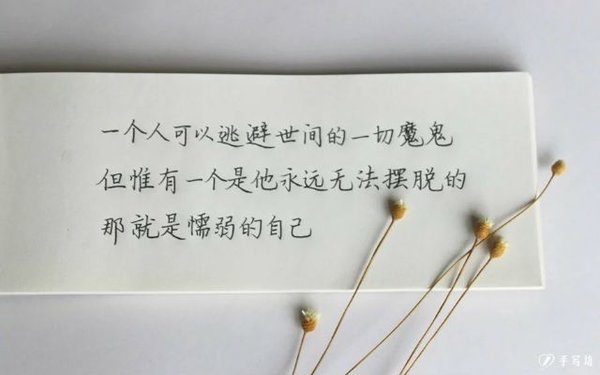 一个人可以逃避世间的一切魔鬼
但惟有一个是他永远无法摆脱的
那就是懦弱的自己
手写角